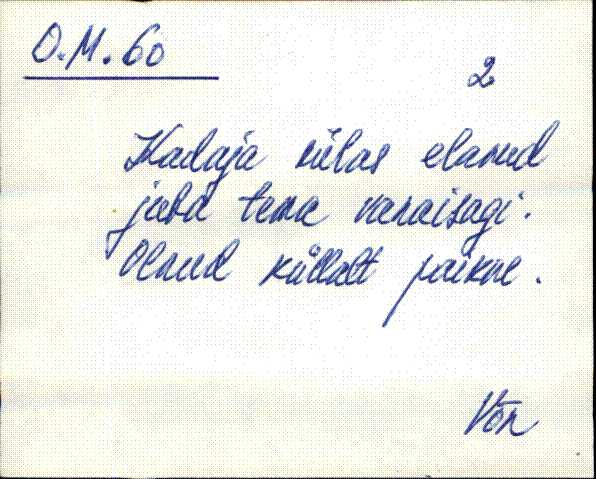 O.M. 60
2
Kadaja külas elanud
juba tema vanaisagi.
Olnud küllalt paikne.
Võn